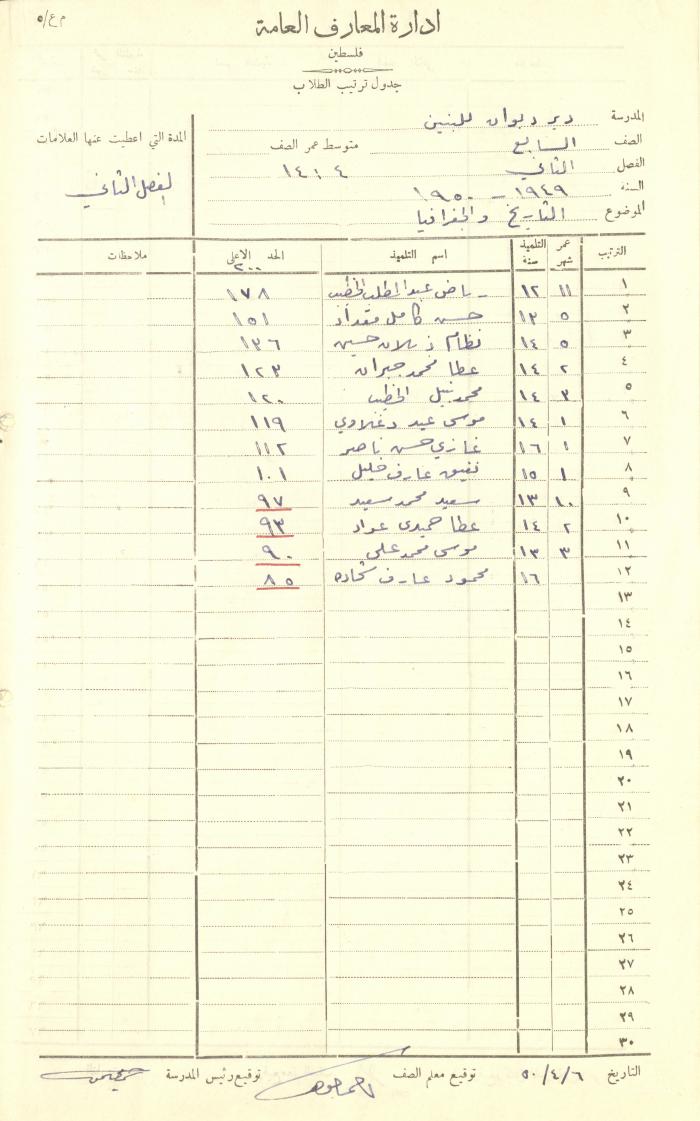 م ع/٥
ادارة المعارف العامة
فلسطين
جدول ترتيب الطلاب
المدرسة دير ديوان للبنين
الصف السابع متوسط عمر الصف المدة التي اعطيت عنها العلامات
الفصل الثاني ٤ : ١٤ الفصل الثاني
السنة ١٩٤٩ - ١٩٥٠
الموضوع التاريخ والجغرافيا
الترتيب عمر التلميذ شهر سنة اسم التلميذ الحد الاعلى ٢٠٠ ملاحظات
١ ١١ ١٢ رياض عبد المطلب الخطيب ١٧٨
٢ ٥ ١٣ حسن كامل مقداد ١٥١
٣ ٥ ١٤ نظام زبلان حسين ١٣٦
٤ ٢ ١٤ عطا محمد جبران ١٢٣
٥ ٣ ١٤ محمد نبيل الخطيب ١٢٠
٦ ١ ١٤ موسى عيد دغلاوي ١١٩
٧ ١ ١٦ غازي حسن ناصر ١١٢
٨ ١ ١٥ عارف خليل ١٠١
٩ ١٠ ١٣ سعيد محمد سعيد ٩٧
١٠ ٢ ١٤ عطا حميدي عواد ٩٣
١١ ٣ ١٣ موسى محمد علي ٩٠
١٢ ١٦ محمود عارف شحاده ٨٥
١٣
١٤
١٥
١٦
١٧
١٨
١٩
٢٠
٢١
٢٢
٢٣
٢٤
٢٥
٢٦
٢٧
٢٨
٢٩
٣٠
التاريخ ٥٠/٤/٦ توقيع معلم الصف توقيع رئيس المدرسة